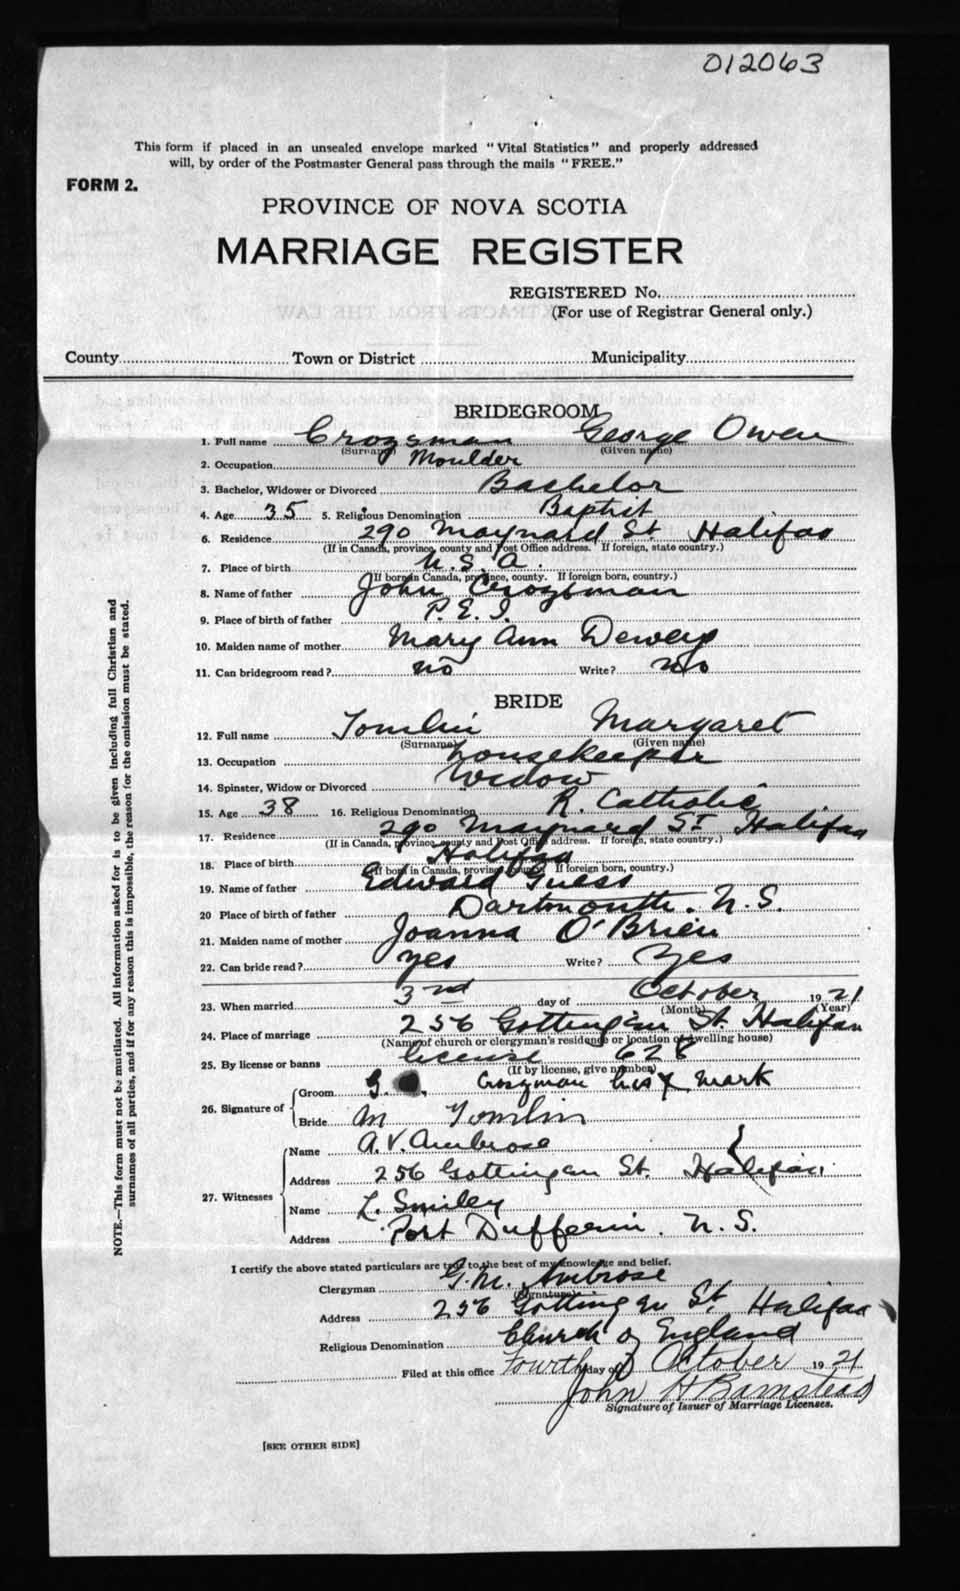 012063
This form if placed in an unsealed envelope marked "Vital Statistics" and properly addressed
will, by order of the Postmaster General pass through the mails "FREE."
FORM 2.
PROVINCE OF NOVA SCOTIA
MARRIAGE REGISTER
REGISTERED No.
(For use of Registrar General only.)
County Town or District Municipality
BRIDEGROOM
1. Full name Crozsman George Owen
(Surname) (Given name)
2. Occupation Moulder
3. Bachelor, Widower or Divorced Bachelor
4. Age 35 5. Religious Denomination Baptist
6. Residence 290 Maynard St Halifax
(If in Canada, province, county and Post Office address. If foreign, state country.)
7. Place of birth U.S.A.
(If born in Canada, province, county. If foreign born, country.)
8. Name of father John Crozsman
9. Place of birth of father P.E.I.
10. Maiden name of mother Mary Ann
11. Can bridegroom read? no Write? no
BRIDE
12. Full name Tomlin Margaret
(Surname) (Given name)
13. Occupation housekeeper
14. Spinster, Widow or Divorced Widow
15. Age 38 16. Religious Denomination R. Catholic
17. Residence 290 Maynard St Halifax
(If in Canada, province, county and Post Office address. If foreign, state country.)
18. Place of birth Halifax
(If born in Canada, province, county. If foreign born, country.)
19. Name of father Edward Guess
20 Place of birth of father Dartmouth. N.S.
21. Maiden name of mother Joanna O'Brien
22. Can bride read? yes Write? Yes
23. When married 3nd day of October 1921
(Month) (Year)
24. Place of marriage 256 Gottingen St. Halifax
(Name of church or clergyman's residence or location of dwelling house)
25. By license or banns license 628
(If by license, give number)
26. Signature of Groom G. Crozsman his X mark
Bride M Tomlin
27. Witnesses Name A. V. Ambrose
Address 256 Gottingen St. Halifax
Name L. Smiley
Address Port Dufferin. N.S.
I certify the above stated particulars are true to the best of my knowledge and belief.
Clergyman G. M. Ambrose
(Signature)
Address 256 Gottingen St. Halifax
Religious Denomination Church of England
Filed at this office Fourth day of October 1921
John H Barnstead
Signature of Issuer of Marriage Licenses.
[SEE OTHER SIDE]
NOTE.—This form must not be mutilated. All information asked for is to be given including full Christian and
surnames of all parties, and if for any reason this is impossible, the reason for the omission must be stated.